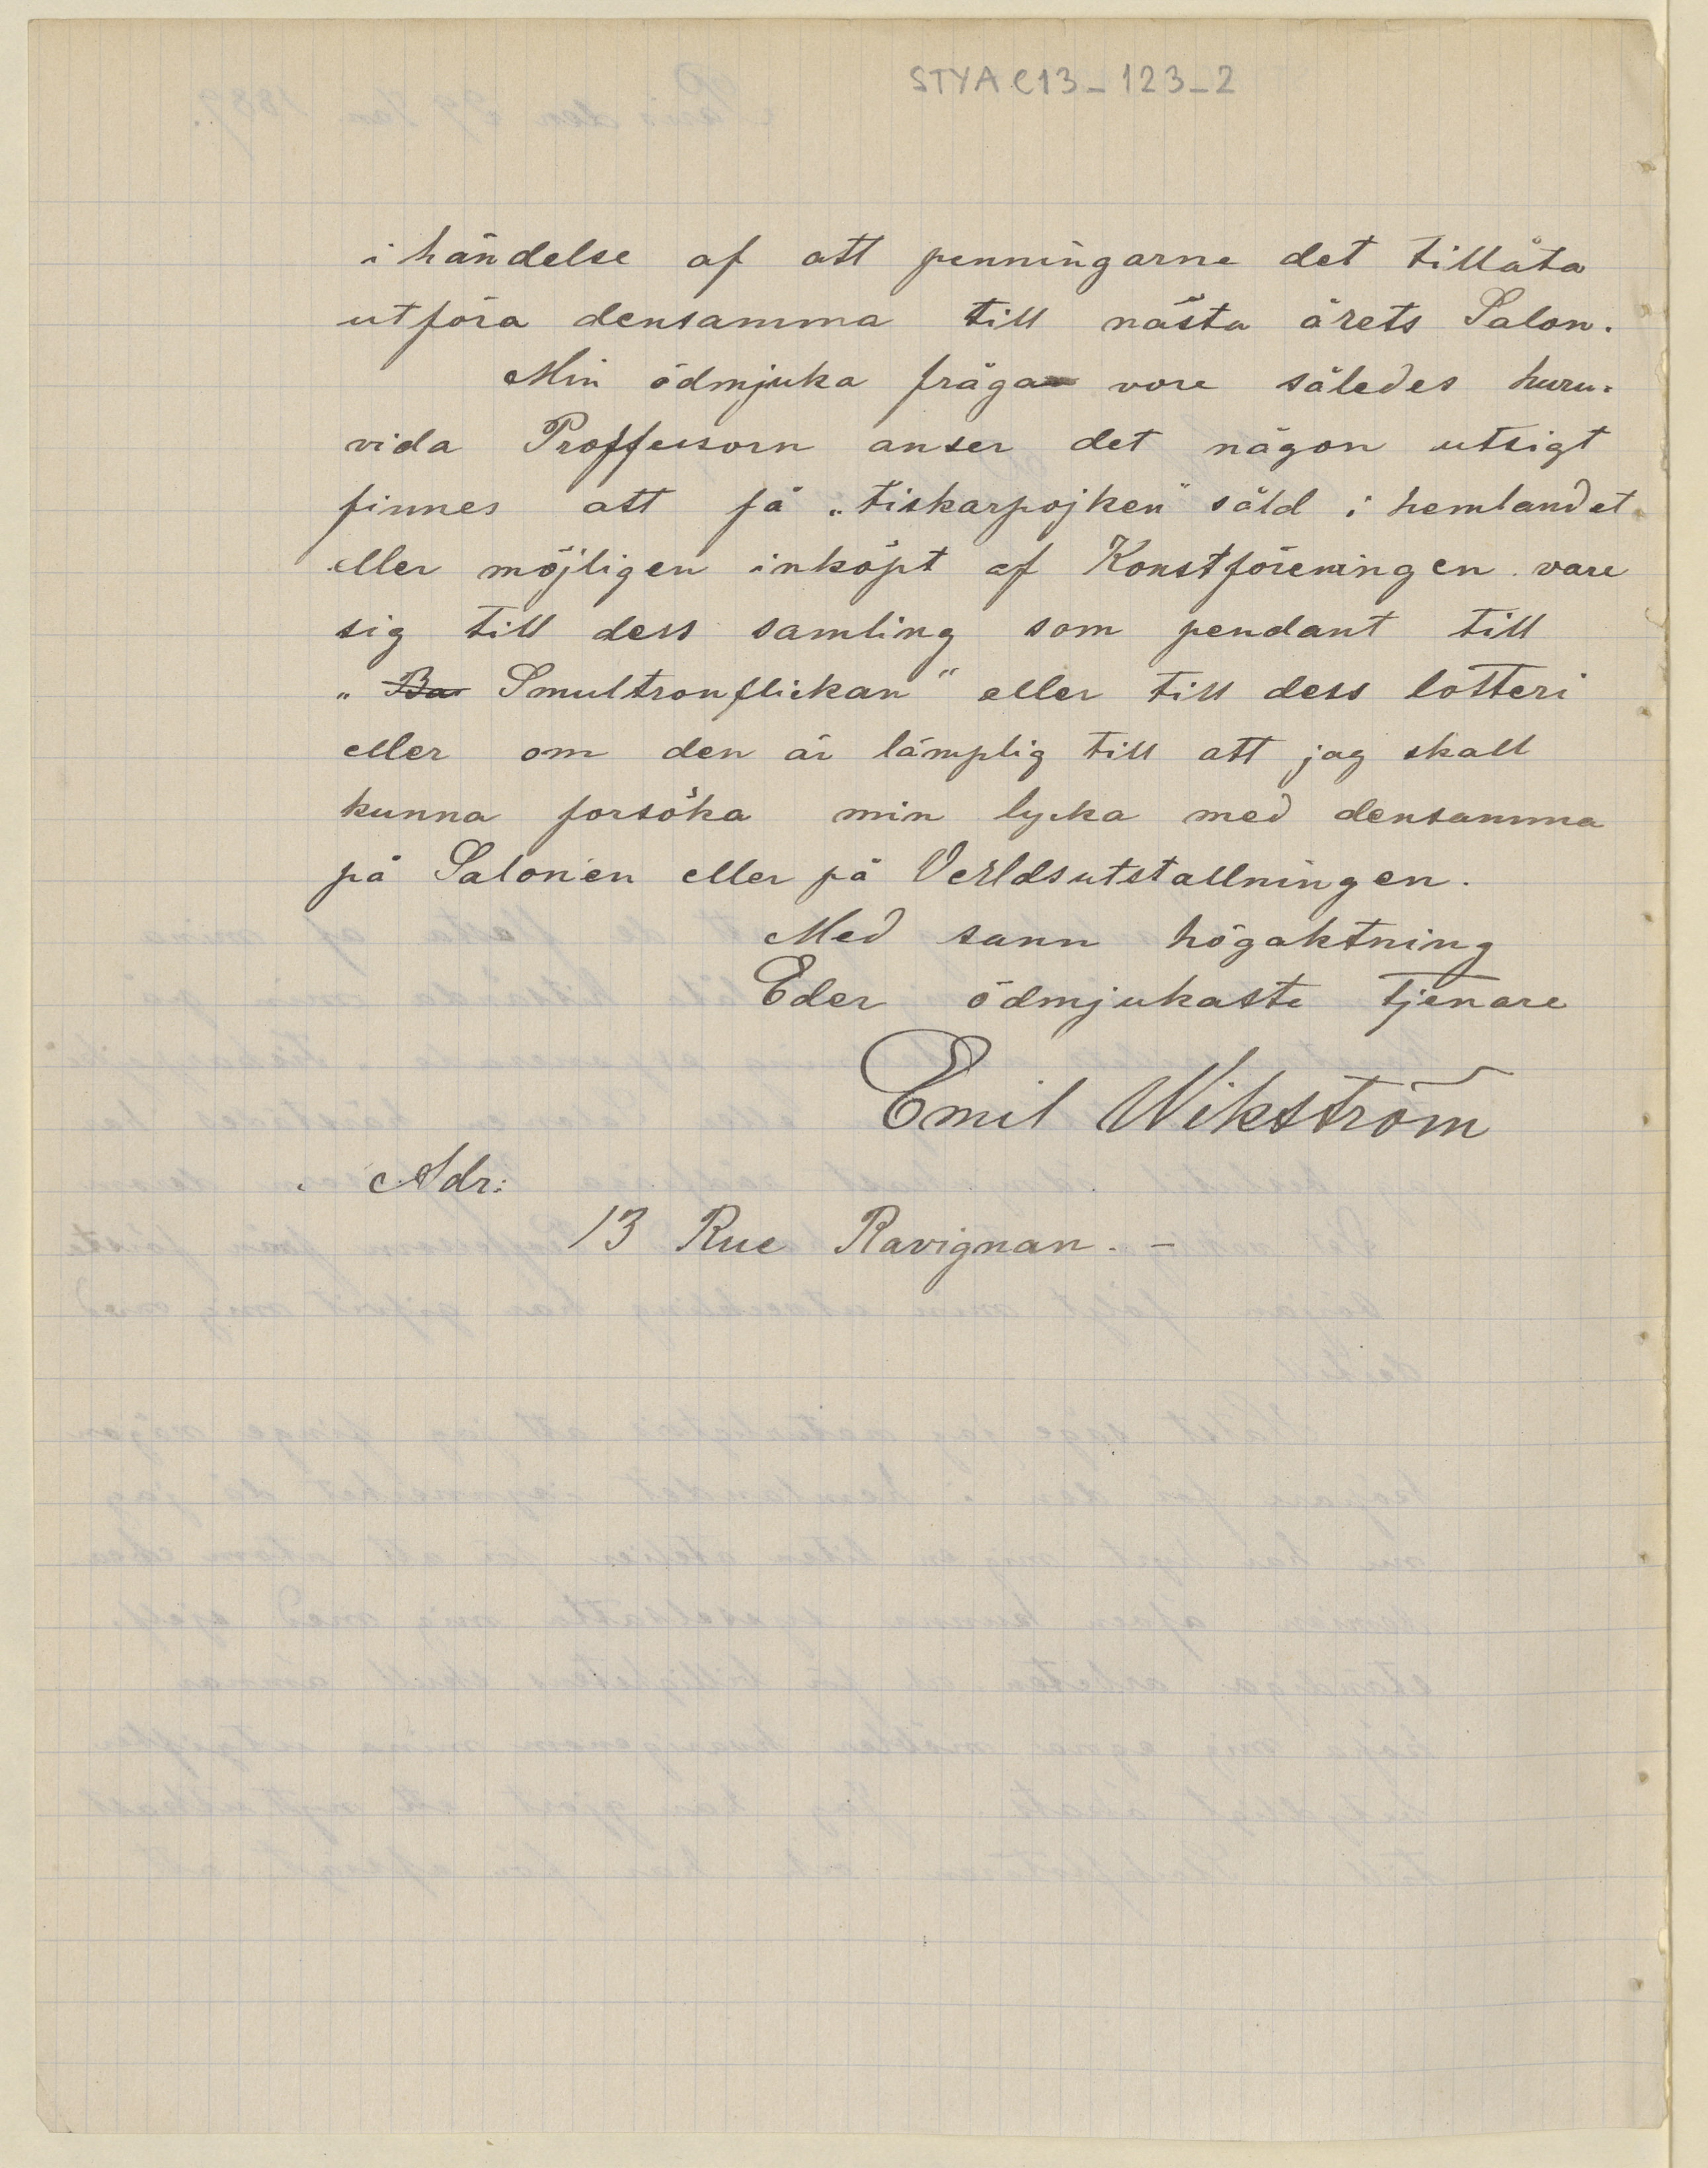 STYA C13_123_2
i händelse af att penningarne det tillåta
utföra densamma till nästa årets Salon.
Min ödmjuka fråga vore således huru-
vida Proffessorn anser det någon utsigt
finnes att få „Fiskarpojken" såld i hemlandet
eller möjligen inköpt af Konstföreningen vare
sig till dess samling som pendant till
„ Ba Smultronflickan" eller till dess lotteri
eller om den är lämplig till att jag skall
kunna forsöka min lycka med densamma
på Salonen eller på Verldsutstallningen.
Med sann högaktning
Eder ödmjukaste tjenare
Emil Wikström
Adr:
13 Rue Ravignan. -